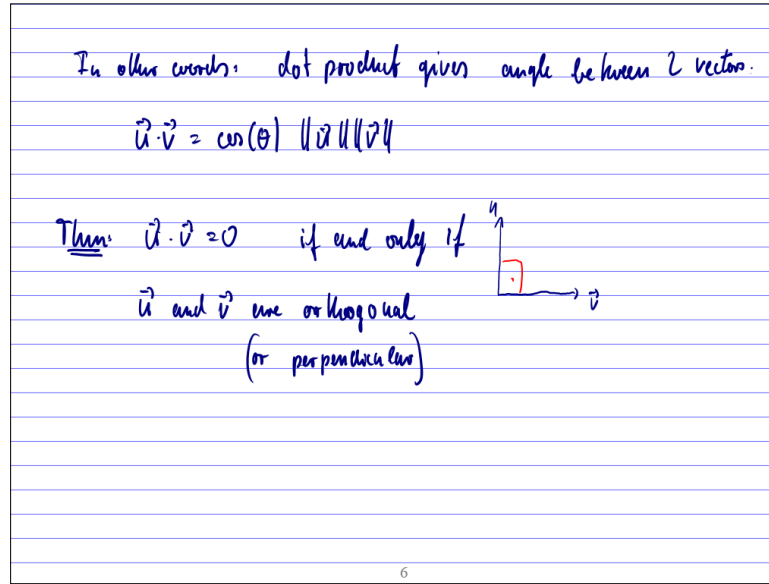 In other words: dot product gives angle between 2 vectors.
u⃗·v⃗ = cos(θ) ‖u⃗‖‖v⃗‖
Thm: u⃗·v⃗ =0 if and only if
u
v⃗
u⃗ and v⃗ are orthogonal
(or perpendicular)
6